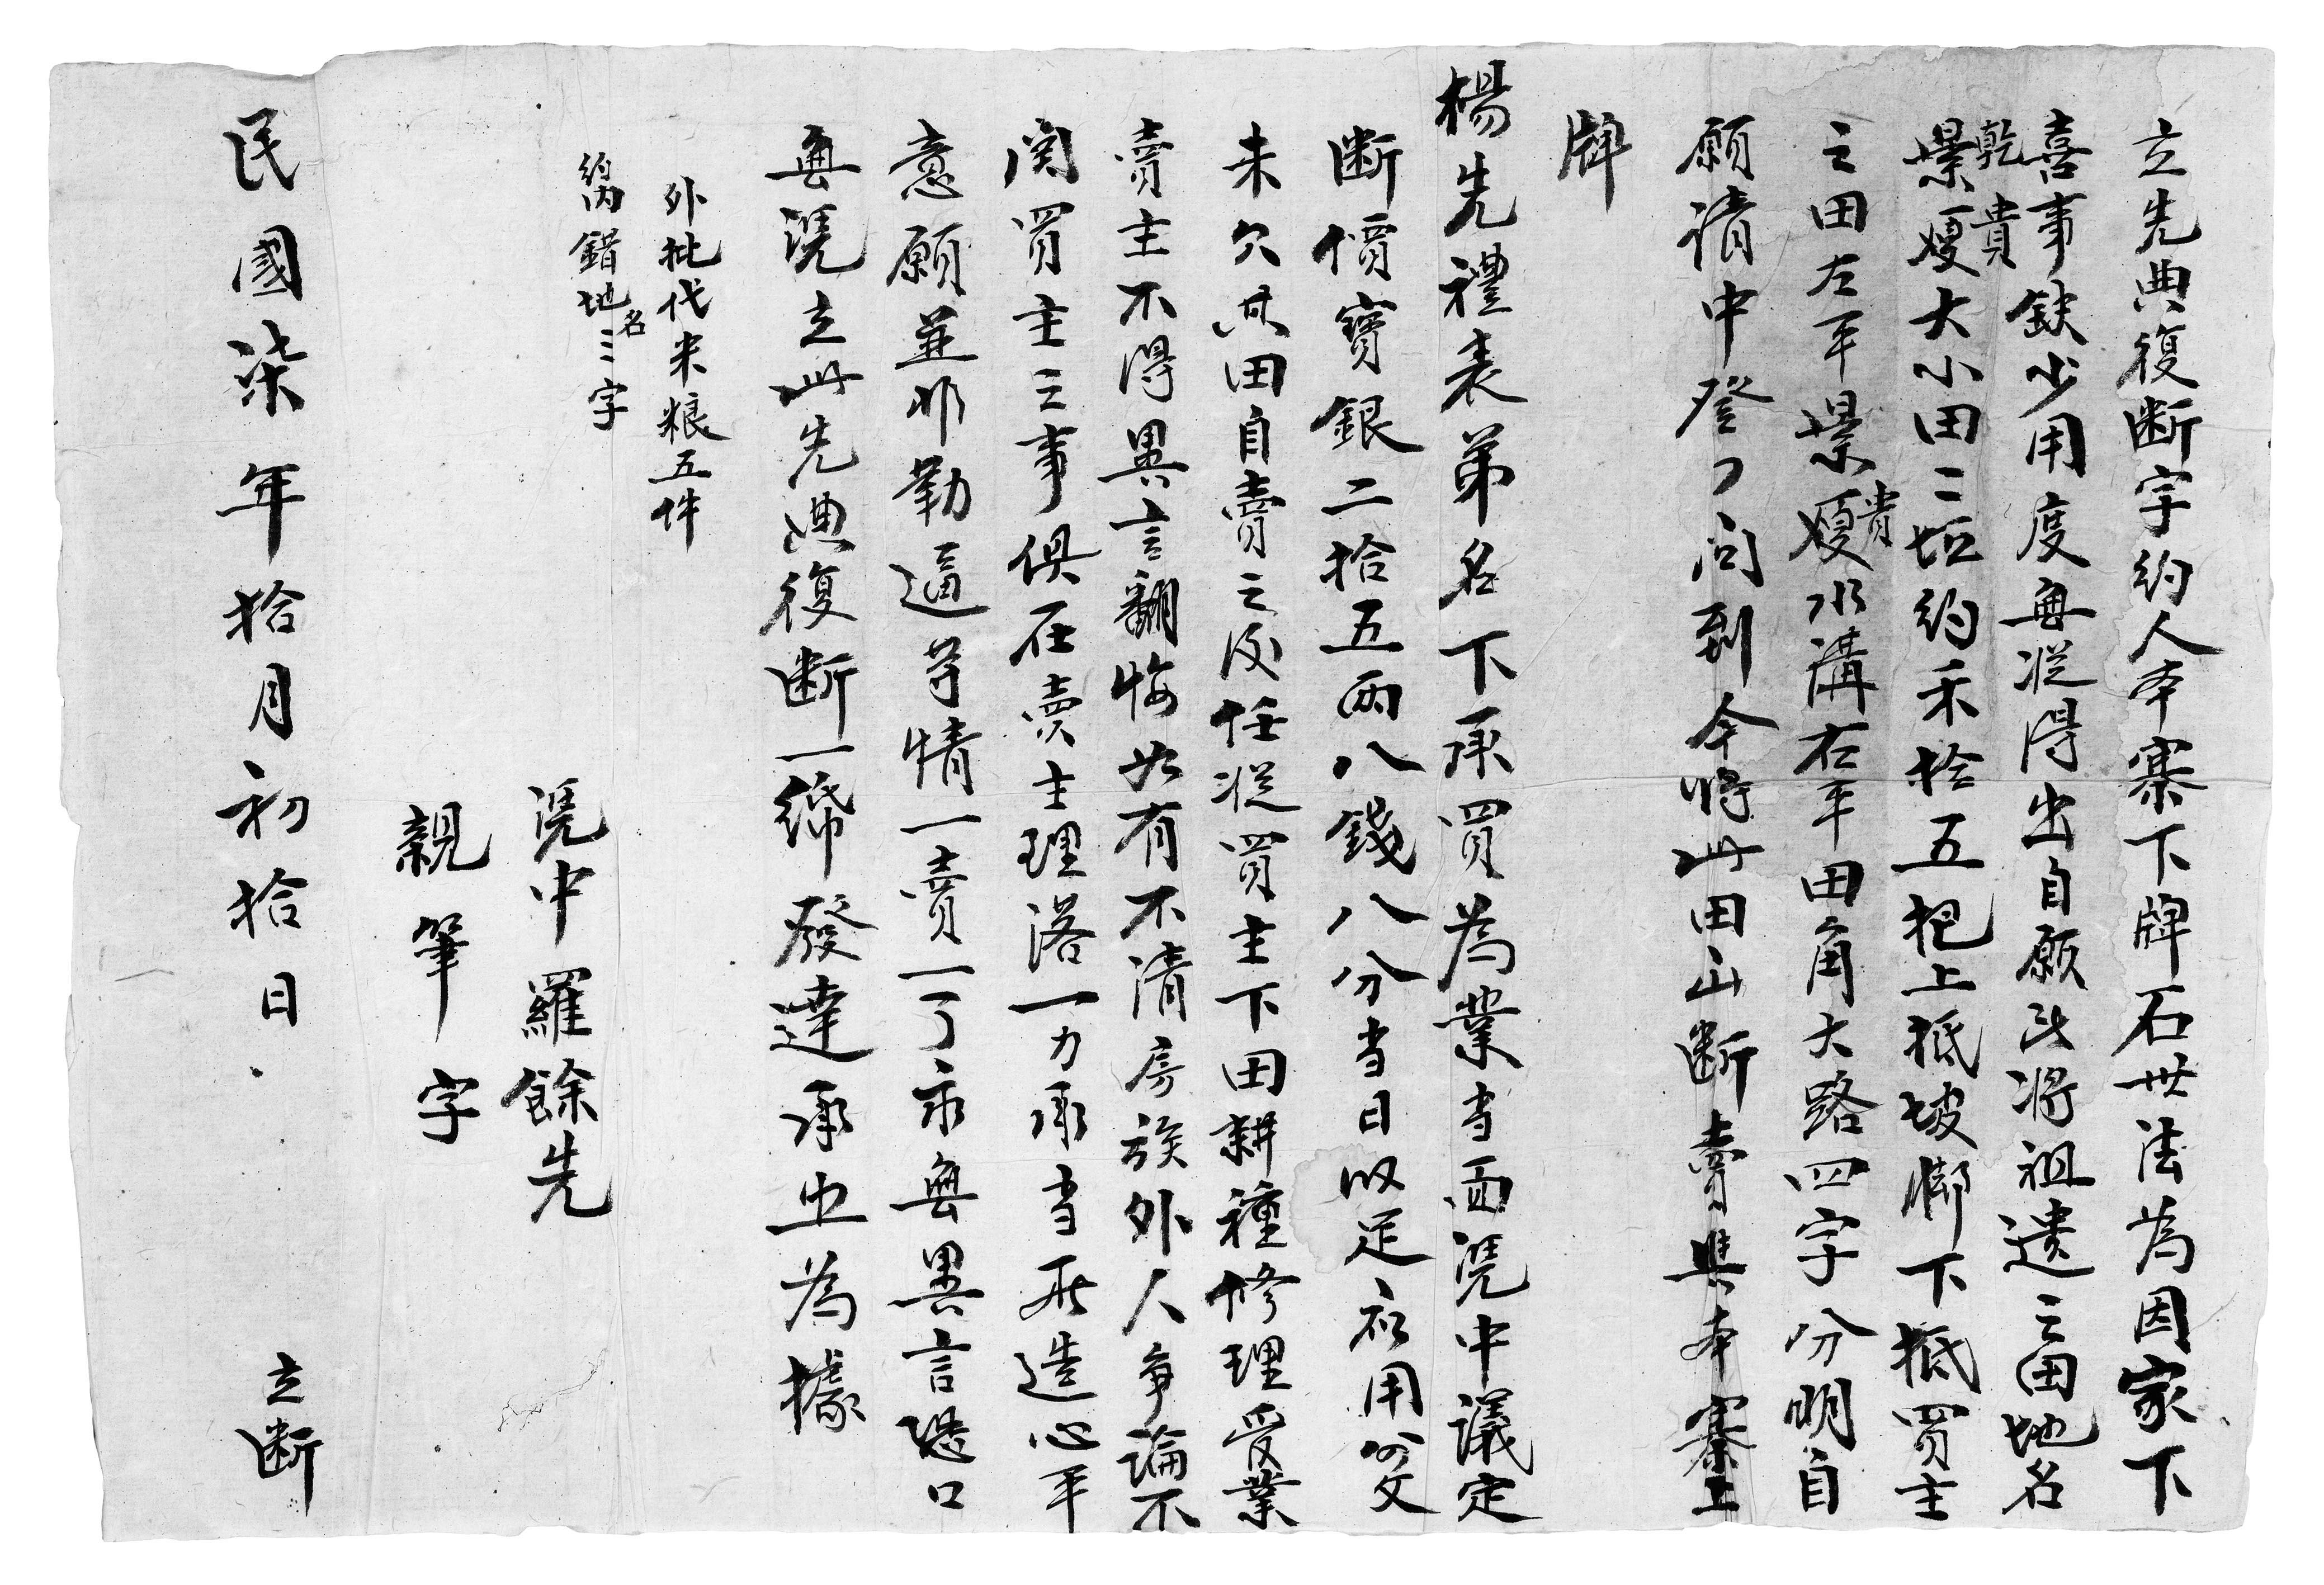 立先典復断字約人本寨下牌石世法為因家下
喜事鈌少用度無從得出自願此將祖遺之田地名
乾貴
景嫂大小田二坵約禾拾五把上抵坡脚下抵買主
之田左平景嫂貴水溝右平田角大路四字分明自
願请中登门问到今將此田山断賣與本寨上
牌
楊先禮表弟名下承買為業当面凴中議定
断價寳銀二拾五兩八錢八分当日收足应用分文
未欠其田自賣之後任從買主下田耕種修理受業
賣主不得異言翻悔如有不清房族外人争論不
関買主之事俱在賣主理落一力承当所造心平
意願並非勒逼等情一賣一了永無異言恐口
無凴立此先典復断一紙發達承照為據
外批代米粮五件
約内錯地名三字
凴中羅餘先
親筆字
民國柒年拾月初拾日 立断